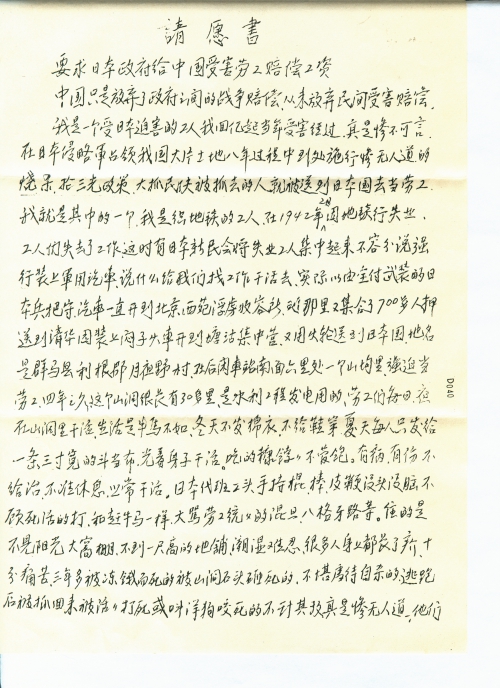 请愿书
要求日本政府给中国受害劳工赔偿工资
中国只是放弃了政府之间的战争赔偿,从未放弃民间受害赔偿.
我是一个受日本迫害的工人我回忆起当年受害经过.真是惨不可言.
在日本侵略軍占领我国大片土地八年过程中到处施行惨无人道的
烧杀抢三光政策.大抓民伕被抓去的人就被送到日本国去当劳工.
我就是其中的一个.我是 地铁的工人,在1942年 因地铁行失业.
工人们失去了工作.这时有日本新民会将失业工人集中起来不容分说强
行装上軍用汽車.说什么给我们找工作干活去.实际以由全付武装的日
本兵把守.汽車一直开到北京西苑俘虏收容所.到那里又集合了700多人押
送到清华园装上闷子火車开到塘沽集中营.又用火轮送到日本国.地名
是群马县利根郡月夜野村.在后闲車站南面六里处一个山沟里强迫当
劳工.四年之久.这个山洞很长有30多里.是水利工程发电用的.劳工们每日 夜
在山洞里干活.生活是牛马不如.冬天不发棉衣.不给鞋穿 夏天每人只发给
一条三寸宽的斗当布.光着身子干活.吃的糠 不管饱.有病.有伤不
给治.不准休息.照常干活.日本代班工头手持棍棒.皮鞭没头没脑.不
顾死活的打.和赶牛马一样.大骂劳工统 的混旦.八格牙路等.住的是
不见阳光大窝棚.不到一尺高的地铺.潮湿又 .很多人身上都长了疥.十
分痛苦三年多被冻饿而死的被山洞石头砸死的.不堪虐待自杀的逃跑
后被抓回来被活活打死或叫洋狗咬死的不计其数真是惨无人道.他们
D040